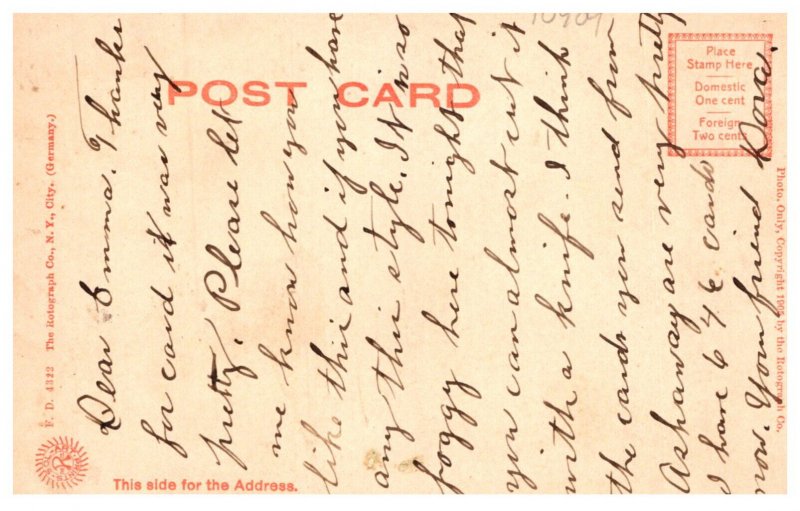 POST CARD
Place
Stamp Here
Domestic
One cent
Foreign
Two cents
Dear Emma. Thanks
for card it was very
pretty. Please let
me know how you
like this and if you have
any this style. It is so
foggy here tonight that
you can almost cut it
with a knife. I think
the cards you send from
Ashaway are very pretty
I have 646 cards
now. Your friend Dora.
F. D. 4322 The Rotograph Co., N. Y., City. (Germany.)
Photo, Only, Copyright 1905 by the Rotograph Co.
This side for the Address.